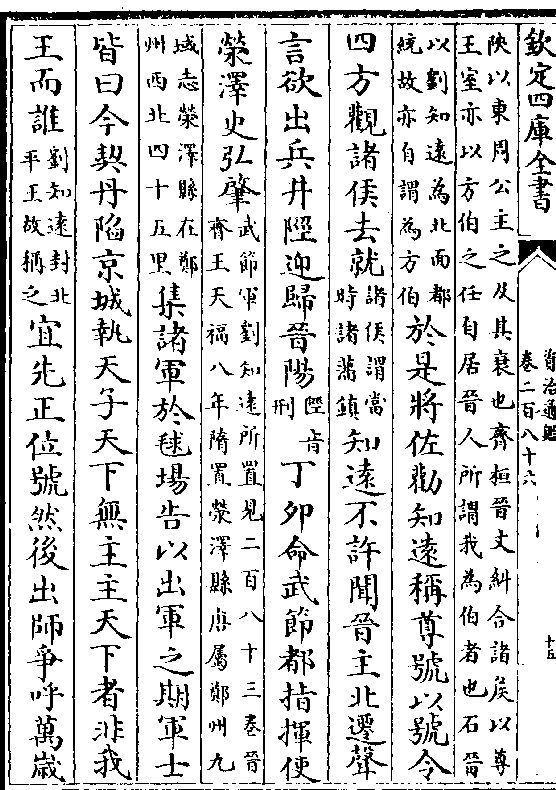 欽定四庫全書
資治通鑑
卷二百八十六
十五
陜以東周公主之及其衰也齊桓晉文糾合諸侯以尊
王室亦以方伯之任自居晉人所謂我為伯者也石晉
以劉知遠為北面都
統故亦自謂為方伯於是將佐勸知遠稱尊號以號令
四方觀諸侯去就諸侯謂當
時諸藩鎮知遠不許聞晉主北遷聲
言欲出兵井陘迎歸晉陽陘音
刑丁卯命武節都指揮使
滎澤史弘肇武節軍劉知遠所置見二百八十三卷晉
齊王天福八年隋置滎澤縣唐屬鄭州九
域志滎澤縣在鄭
州西北四十五里集諸軍於毬場告以出軍之期軍士
皆曰今契丹陷京城執天子天下無主主天下者非我
王而誰劉知遠封北
平王故稱之宜先正位號然後出師爭呼萬歲